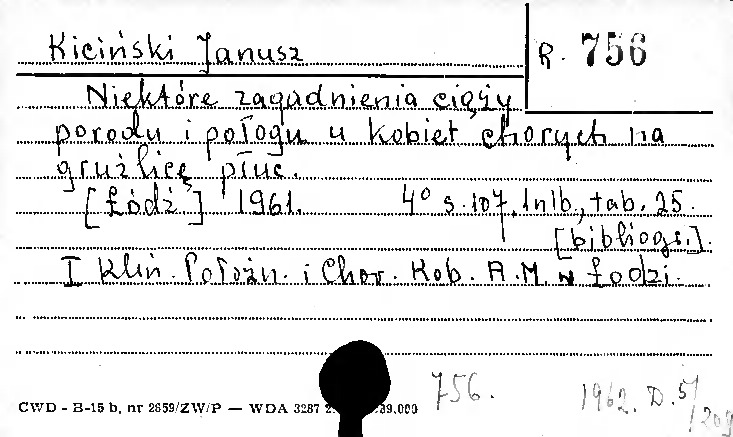 Kiciński Janusz
R. 756
Niektóre zagadnienia ciąży
porodu i połogu u kobiet chorych na
gruźlicę płuc.
[Łódź] 1961. 4° s. 107, 1nlb., tab. 25.
[bibliogr.].
I Klin. Położn. i Chor. Kob. A.M. w Łodzi.
756. 1962. D. 5/209
CWD - B-15 b, nr 2859/ZW/P — WDA 3287 2 39.000